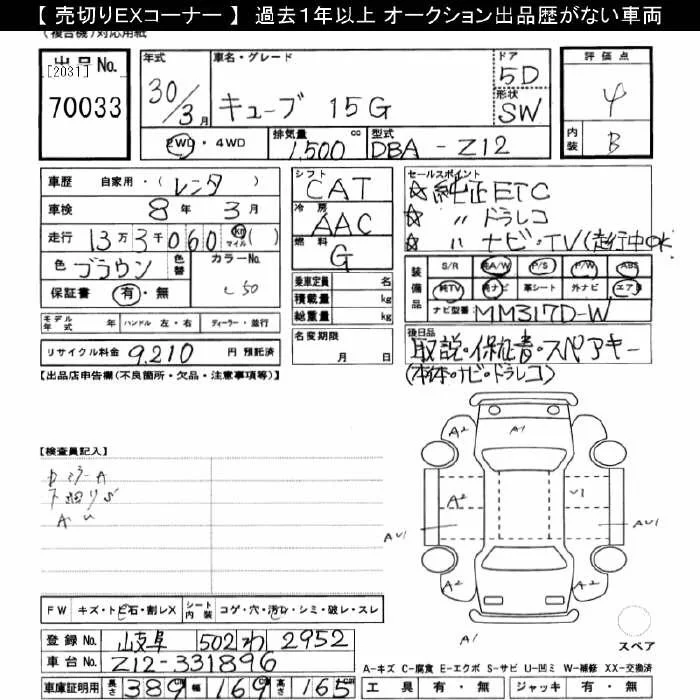 【 売切りEXコーナー 】 過去１年以上 オークション出品歴がない車両
(複合機)対応用紙
出品No.
[2031]
70033
年式
30/3月
車名・グレード
キューブ 15G
ドア
5D
形状
SW
評価点
4
内装
B
2WD ・ 4WD
排気量
1,500 cc
型式
DBA - Z12
車歴 自家用・( レンタ )
車検 8年 3月
走行 13万3千060 Km マイル ( )
色 ブラウン 色替 カラーNo.
L50
保証書 有・無
シフト
CAT
冷房
AAC
燃料
G
乗車定員 名
積載量 kg
総重量 kg
セールスポイント
☆ 純正ETC
☆ 〃 ドラレコ
☆ 〃 ナビ・TV(走行中OK
装備品
S/R 純A/W P/S P/W ABS
純TV 純ナビ 革シート 外ナビ エアB
ナビ型番 MM317D-W
モデル年式 年 ハンドル 左・右 ディーラー・並行
リサイクル料金 9,210 円 預託済
名変期限
月 日
後日品
取説・保証書・スペアキー
(本体・ナビ・ドラレコ)
【出品店申告欄(不良箇所・欠品・注意事項等)】
【検査員記入】
A2 A1
A2 U1
AU1 AU1
A2 A2
A1
スペア
FW キズ・トビ石・割レX シート内装 コゲ・穴・汚レ・シミ・破レ・スレ
登録No. 岐阜 502 わ 2952
車台No. Z12-331896
車庫証明用 長さ 389cm 幅 169cm 高さ 165cm
A-キズ C-腐食 E-エクボ S-サビ U-凹ミ W-補修 XX-交換済
工具 有・無 ジャッキ 有・無